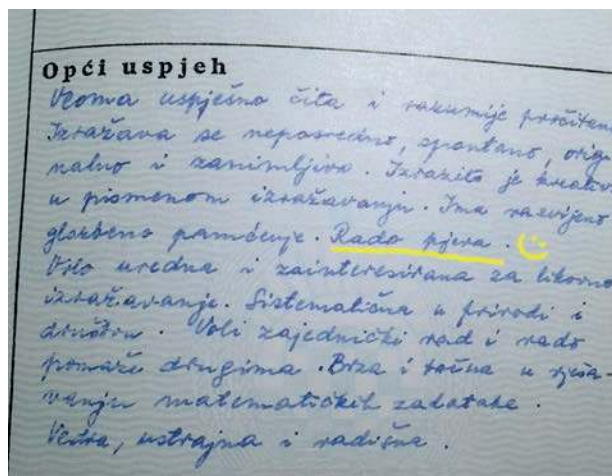 Opći uspjeh
Veoma uspješno čita i razumije pročitano.
Izražava se neposredno, spontano, origi-
nalno i zanimljivo. Izrazito je kreativ
u pismenom izražavanju. Ima razvijeno
glazbeno pamćenje. Rado pjeva.
Vrlo uredna i zainteresirana za likovno
izražavanje. Sistematična u prirodi i
društvu. Voli zajednički rad i rado
pomaže drugima. Brza i točna u rješa-
vanju matematičkih zadataka.
Vedra, ustrajna i radišna.